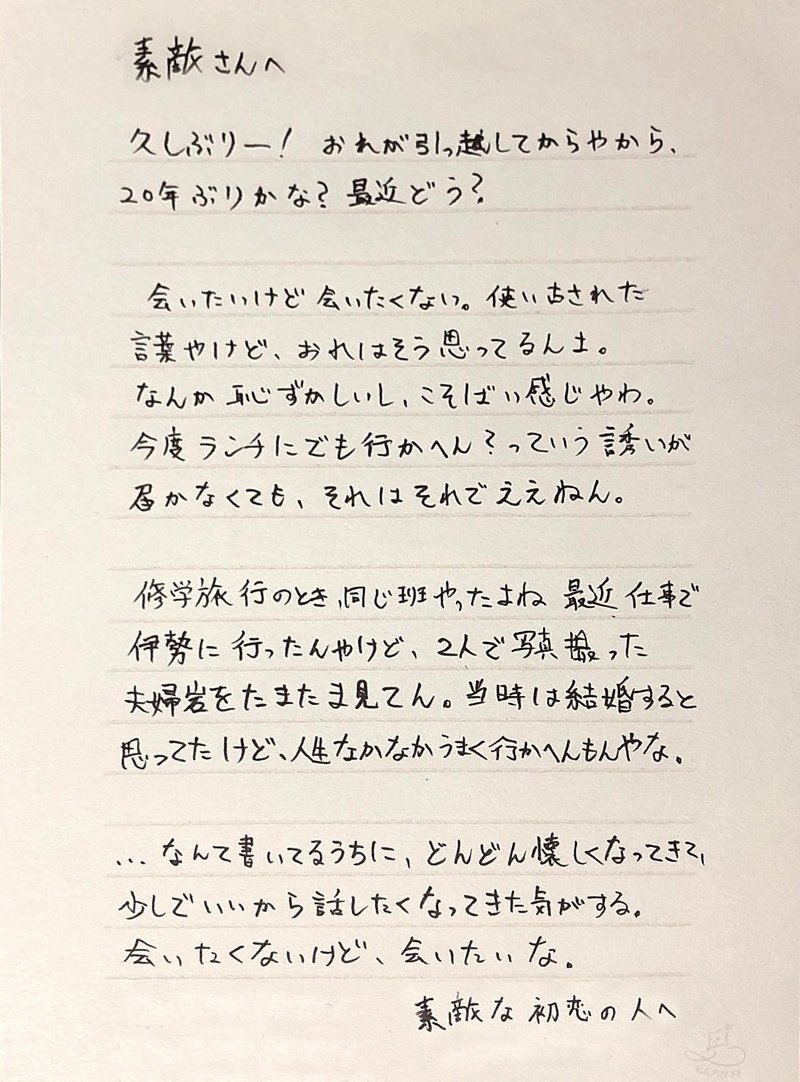 素敵さんへ
久しぶりー! おれが引っ越してからやから、
20年ぶりかな? 最近どう?
会いたいけど会いたくない。使い古された
言葉やけど、おれはそう思ってるんよ。
なんか恥ずかしいし、こそばい感じやわ。
今度ランチにでも行かへん?っていう誘いが
届かなくても、それはそれでええねん。
修学旅行のとき、同じ班やったよね 最近仕事で
伊勢に行ったんやけど、2人で写真撮った
夫婦岩をたまたま見てん。当時は結婚すると
思ってたけど、人生なかなかうまく行かへんもんやな。
...なんて書いてるうちに、どんどん懐しくなってきて、
少しでいいから話したくなってきた気がする。
会いたくないけど、会いたいな。
素敵な初恋の人へ